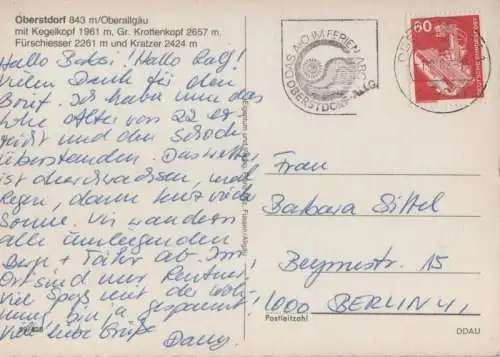 Oberstdorf 843 m/Oberallgäu
mit Kegelkopf 1961 m, Gr. Krottenkopf 2657 m.
Fürschiesser 2261 m und Kratzer 2424 m
Hallo Babsi! Hallo Ralf!
Vielen Dank für den
Brief. Ich habe nun das
hohe Alter von 22 er-
reicht und den Schock
überstanden. Das Wetter
ist durchwachsen, mal
Regen, dann kurz
Sonne. Wir wandern
alle umliegenden
Berge + Täler ab. Im
Ort sind nur Rentner.
Viel Spaß mit der
bin gespannt!
Viele liebe Grüße
Dany
DAS A&O IM FERIEN-ABC
OBERSTDORF-ALLG.
60
DEUTSCHE BUNDESPOST
Frau
Barbara Sittel
15
1000 BERLIN 41
Postleitzahl
DDAU